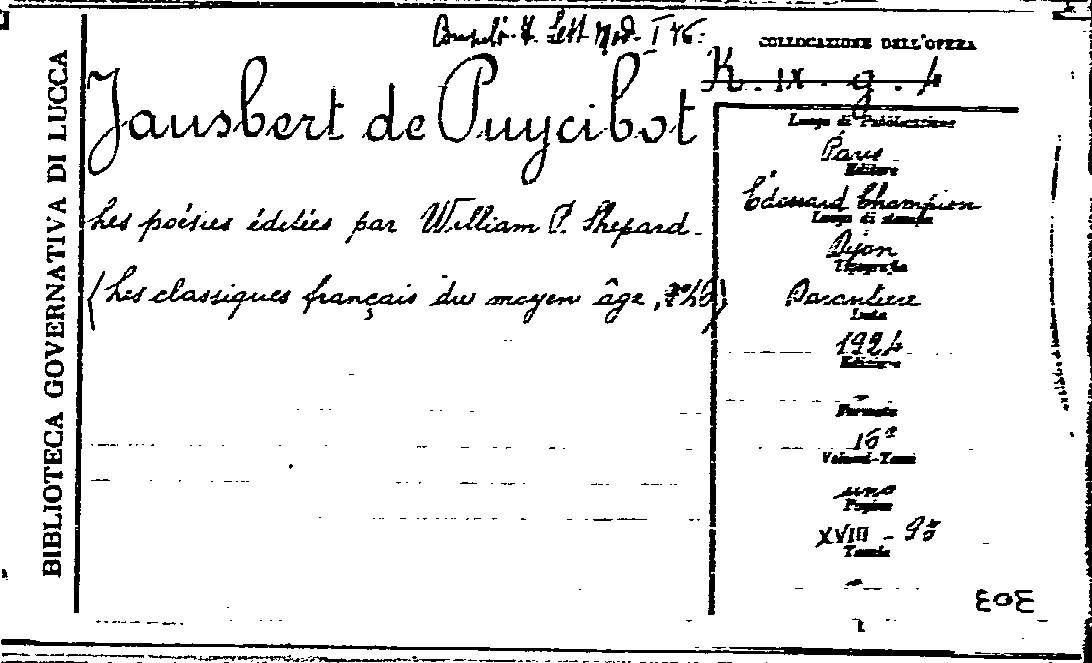 BIBLIOTECA GOVERNATIVA DI LUCCA
Lett. Mod. I 46.
COLLOCAZIONE DELL'OPERA
K. IX. g. 4
Jausbert de Puycibot
Les poésies éditées par William P. Shepard.
(Les classiques français du moyen âge,
Luogo di Pubblicazione
Paris
Editore
Édouard Champion
Luogo di stampa
Dijon
Tipografia
Darantiere
Data
1924
Edizione
Formato
16°
Volumi-Tomi
uno
Pagine
XVIII - 93
Tavole
303